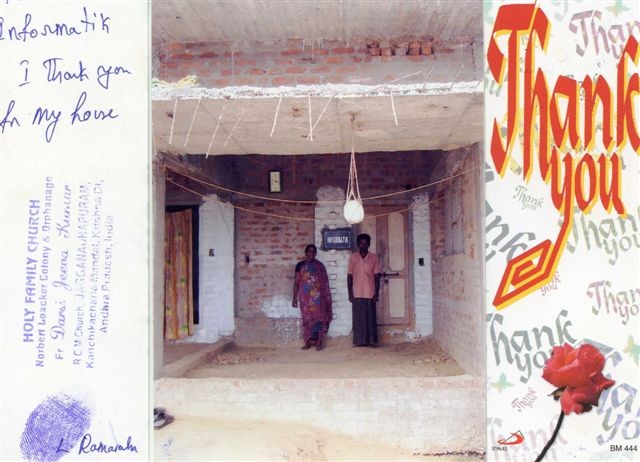 Informatik
I Thank you
for my house
HOLY FAMILY CHURCH
Norbert Loacker Colony & Orphanage
Fr Darsi Jeeva Kumar
R C M Church JAGGANADHAPURAM,
Kanchikacherla Mandal, Krishna Dt,
Andhra Pradesh, India
L Ramaralu
INFORMATIK
Thank
you
Thank you
Thank you
Thank you
Thank you
Thank you
Thank you
Thank you
ST PAULS
BM 444